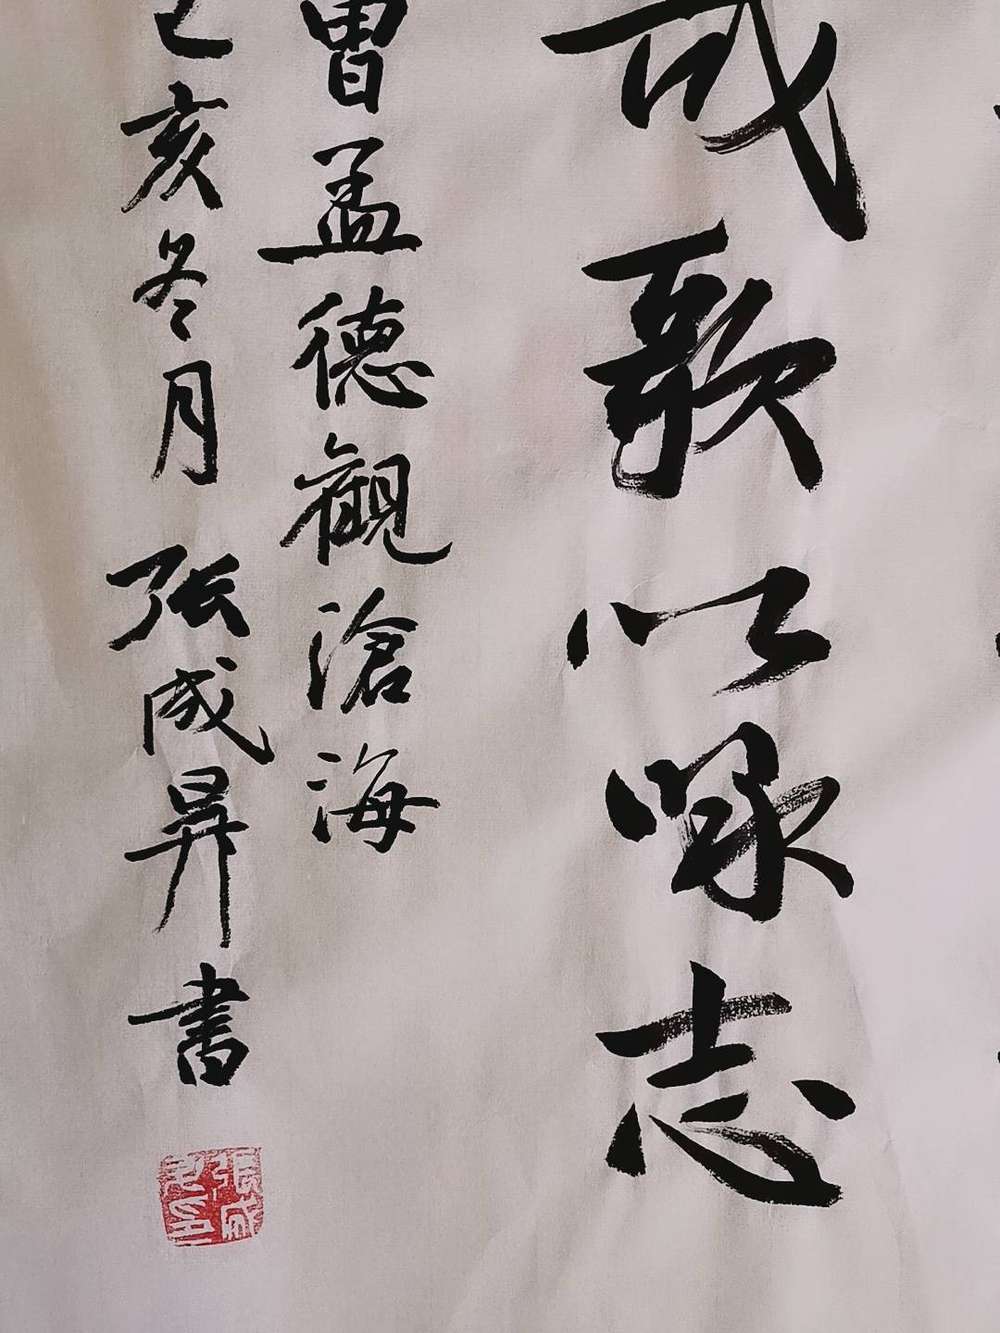 哉歌以咏志
曹孟德觀滄海
己亥冬月 张成昇書
張成昇印